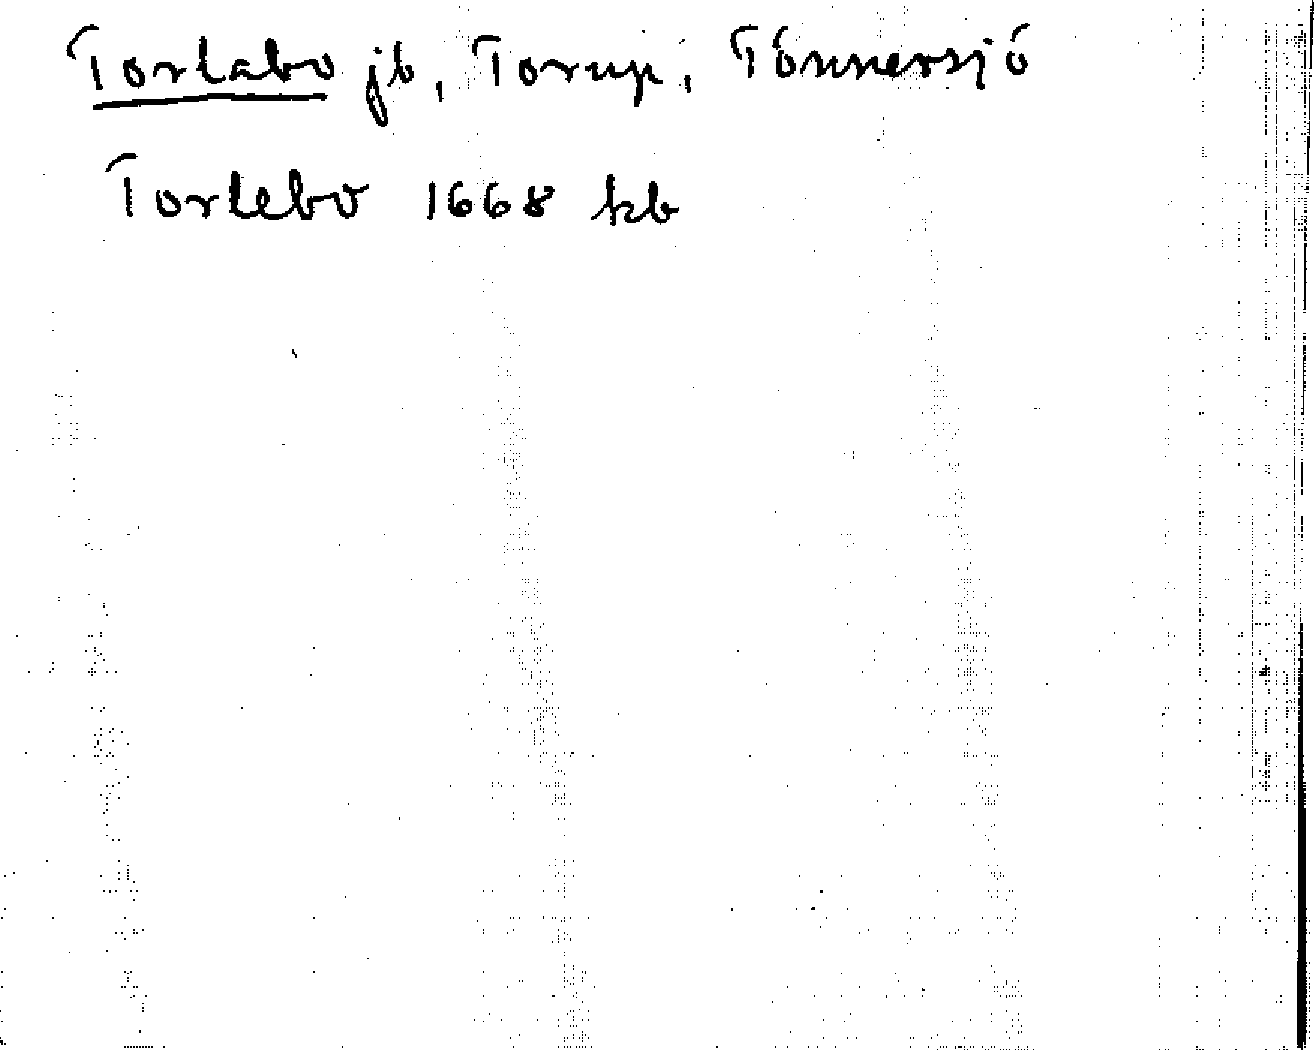 Torlabo jb, Torup, Tönnersjö
Torlebo 1668 kb